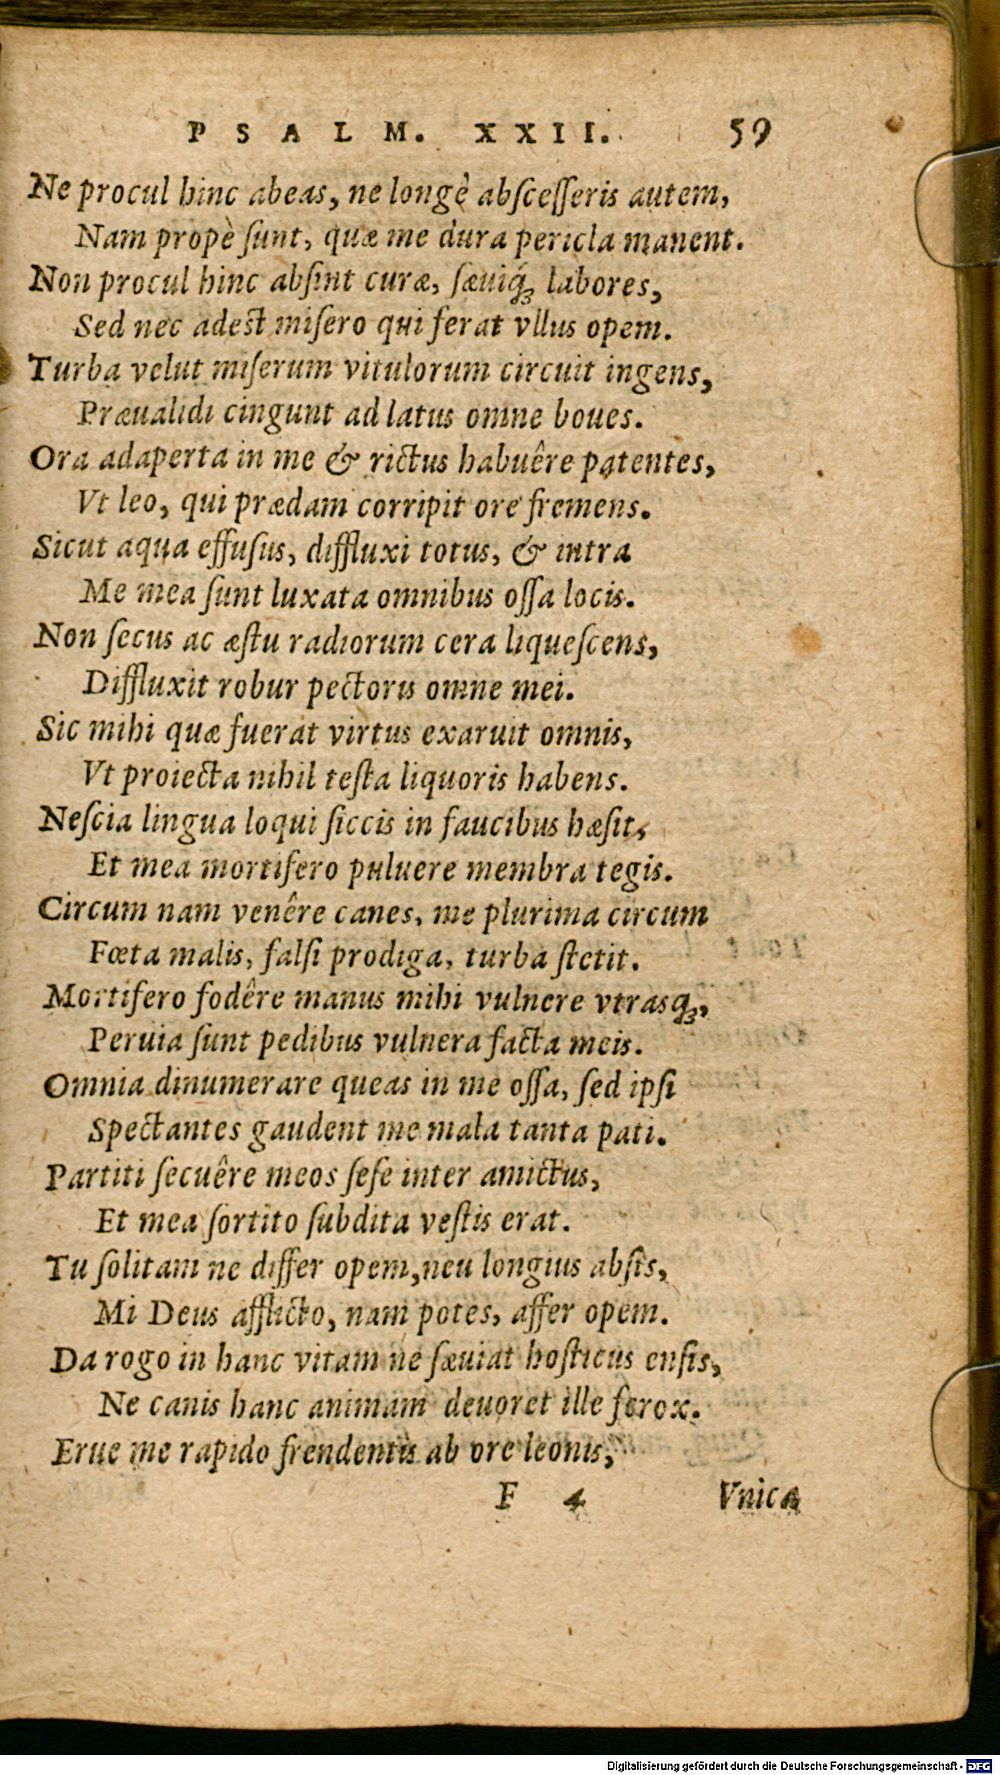 PSALM. XXII. 59
Ne procul hinc abeas, ne longè abſceſſeris autem,
Nam propè ſunt, quæ me dura pericla manent.
Non procul hinc abſint curæ, ſæuiq́ꝫ labores,
Sed nec adest miſero qui ferat vllus opem.
Turba velut miſerum vitulorum circuit ingens,
Præualidi cingunt ad latus omne boues.
Ora adaperta in me & rictus habuêre patentes,
Vt leo, qui prædam corripit ore fremens.
Sicut aqua effuſus, diffluxi totus, & intra
Me mea ſunt luxata omnibus oſſa locis.
Non ſecus ac æſtu radiorum cera liqueſcens,
Diffluxit robur pectoris omne mei.
Sic mihi quæ fuerat virtus exaruit omnis,
Vt proiecta nihil teſta liquoris habens.
Neſcia lingua loqui ſiccis in faucibus hæſit,
Et mea mortifero puluere membra tegis.
Circum nam venêre canes, me plurima circum
Fœta malis, falſi prodiga, turba ſtetit.
Mortifero fodêre manus mihi vulnere vtrasqꝫ,
Peruia ſunt pedibus vulnera facta meis.
Omnia dinumerare queas in me oſſa, ſed ipſi
Spectantes gaudent me mala tanta pati.
Partiti ſecuêre meos ſeſe inter amictus,
Et mea ſortito ſubdita veſtis erat.
Tu ſolitam ne differ opem, neu longius abſis,
Mi Deus afflicto, nam potes, affer opem.
Da rogo in hanc vitam ne ſæuiat hoſticus enſis,
Ne canis hanc animam deuoret ille ferox.
Erue me rapido frendentis ab ore leonis,
F 4 Vnica
Digitalisierung gefördert durch die Deutsche Forschungsgemeinschaft - DFG